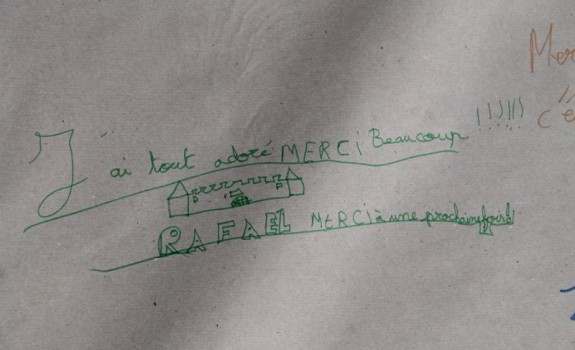 J'ai tout adoré MERCi Beaucoup !!!!!!!
Mer
c'é
RAFAEL MERCi à une prochaine fois!